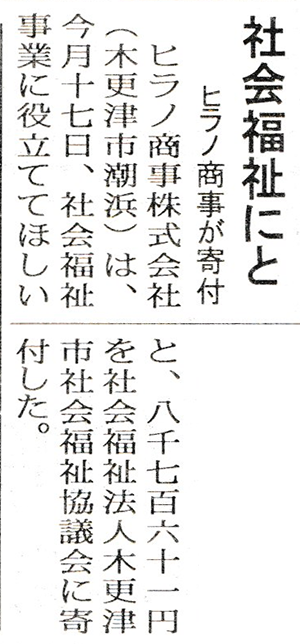 社会福祉にと
ヒラノ商事が寄付
ヒラノ商事株式会社
（木更津市潮浜）は、
今月十七日、社会福祉
事業に役立ててほしい
と、八千七百六十一円
を社会福祉法人木更津
市社会福祉協議会に寄
付した。